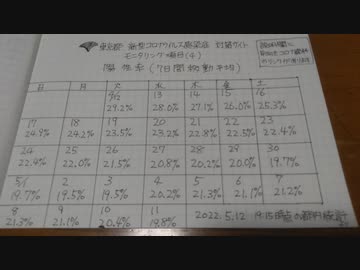 東京都 新型コロナウイルス感染症 対策サイト
モニタリング項目(4)
陽性率(7日間移動平均)
日 月 火 水 木 金 土
4/12 13 14 15 16
29.2% 28.0% 27.1% 26.0% 25.3%
17 18 19 20 21 22 23
24.9% 24.2% 23.5% 23.2% 22.8% 22.5% 22.4%
24 25 26 27 28 29 30
22.4% 22.0% 21.5% 20.8% 20.2% 20.0% 19.7%
5/1 2 3 4 5 6 7
19.7% 19.5% 19.5% 20.2% 21.3% 21.1% 21.2%
8 9 10 11
21.3% 21.1% 20.4% 19.8%
2022.5.12 19:15時点の都内統計